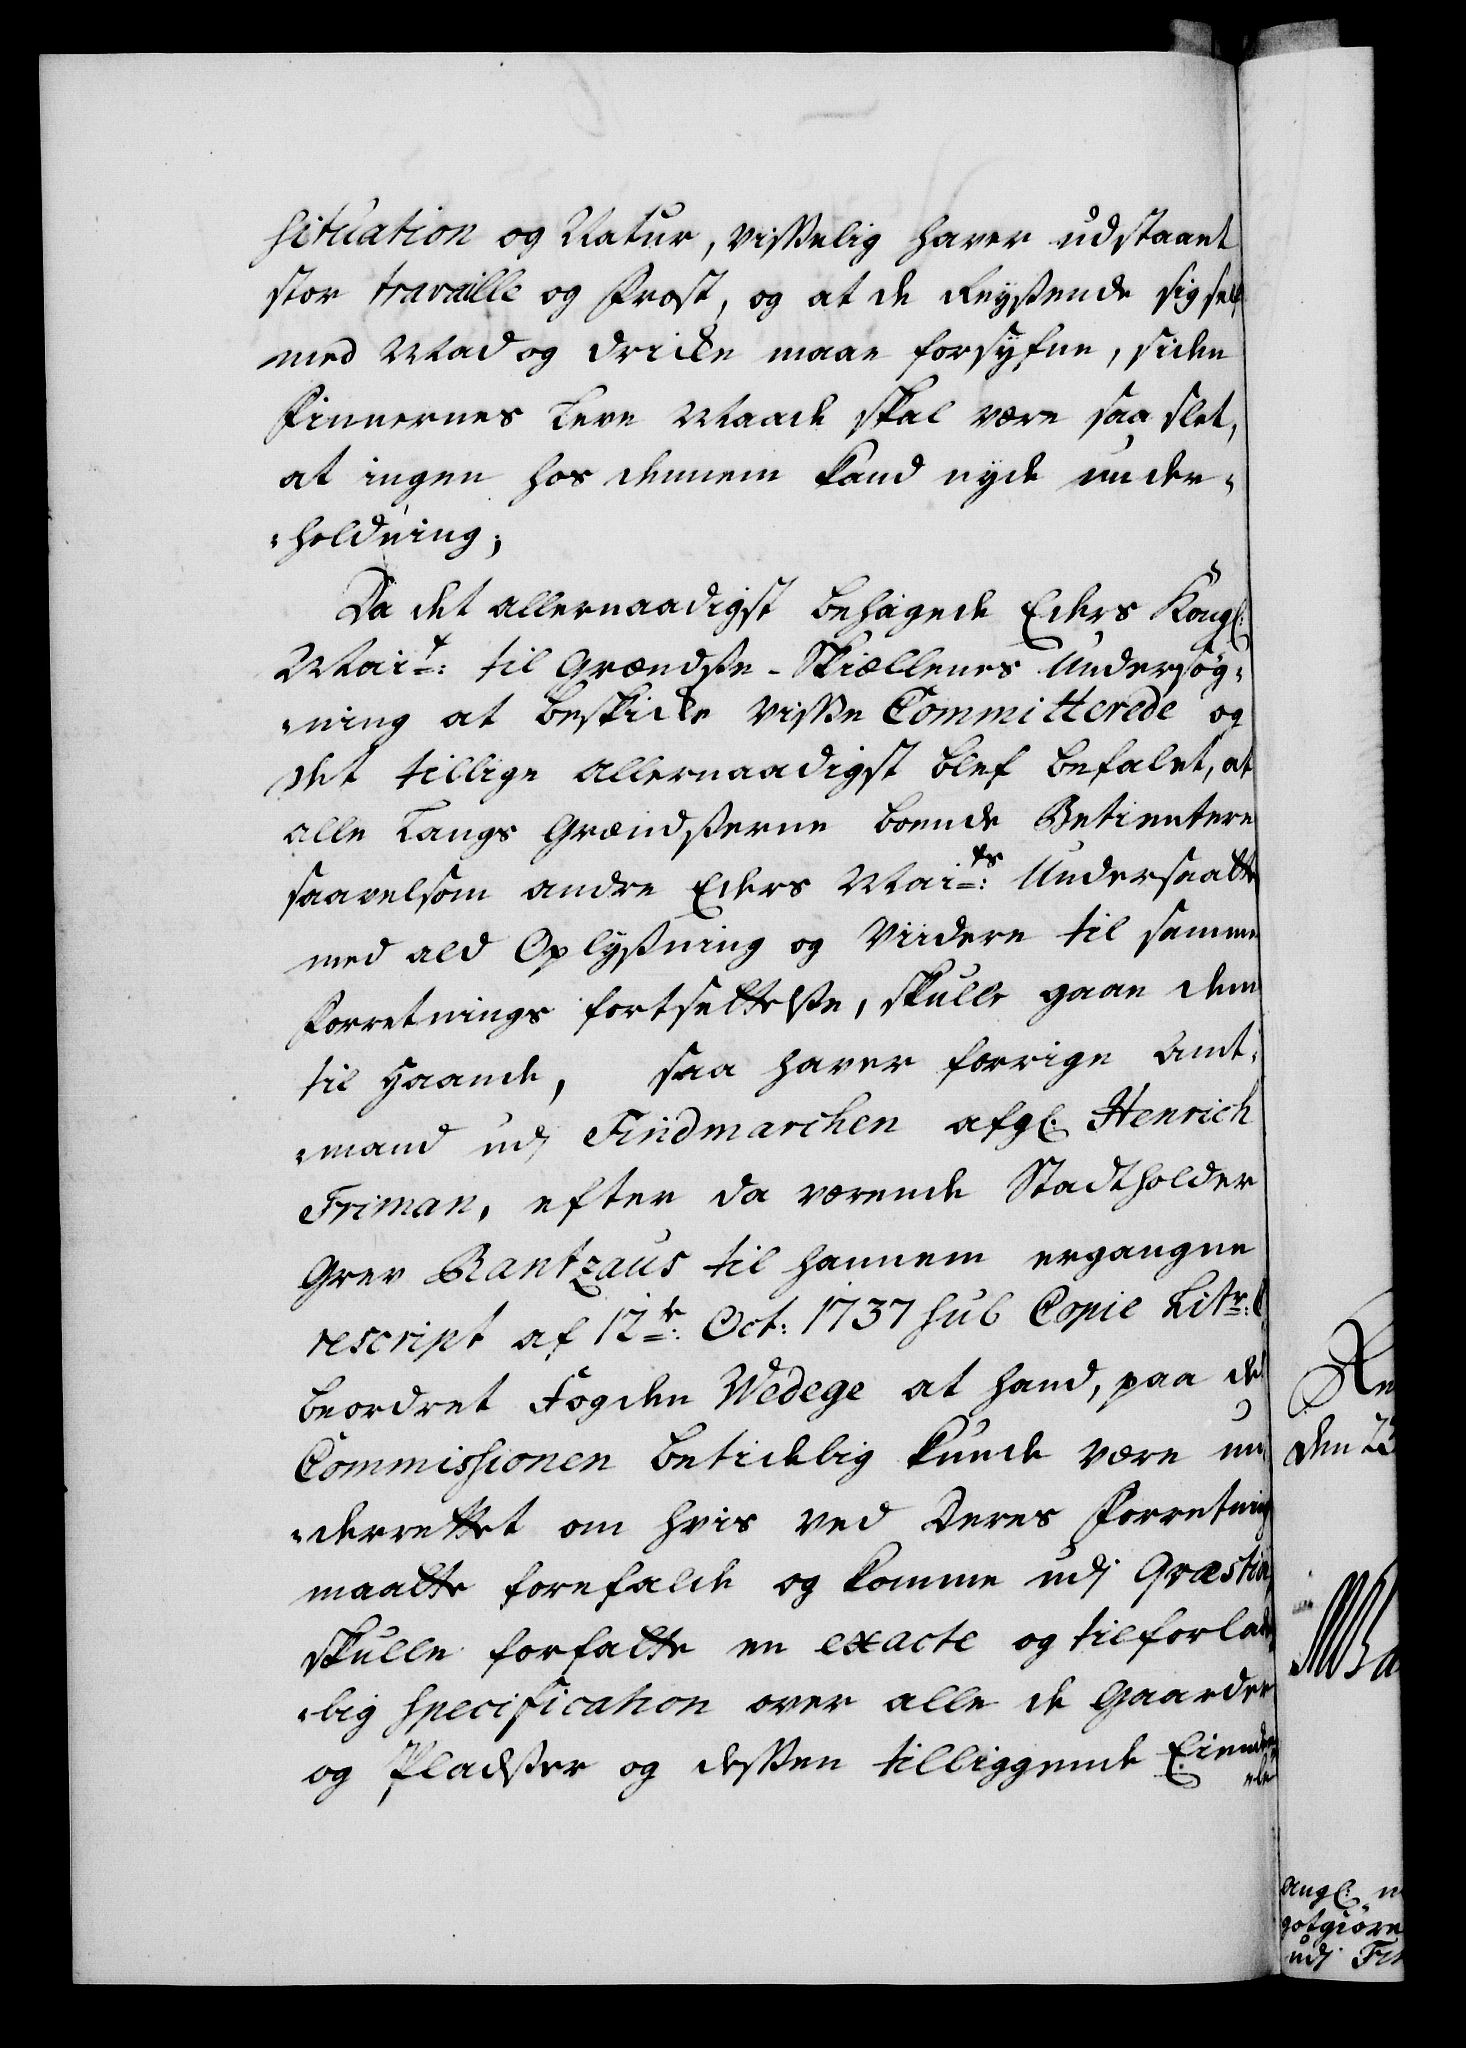 situation og Natur, visselig haver udstaaet
stor travaille og Frost, og at de Reysende sig self
med Mad og dricke maae forsyfne, siden
Finnernes Leve Maade skal være saa slet,
at ingen hos dennem kand nyde under-
-holdning;
Da det allernaadigst behagede Eders Kongl:
Mai:t til Grændse-Skiællenes Undersøg-
-ning at beskicke visse Committerede og
det tillige allernaadigst blef befalet, at
alle Langs Grændserne boende Betientere
saavelsom andre Eders Mai:ts Undersaatte
med ald Oplysning og Viidere til samme
Forretnings fortsettelse, skulle gaae dem
til Haande, saa haver forrige Amt-
-mand udj Findmarchen afgl: Henrich
Friman, efter da værende Stadtholder
Grev Rantzaus til hannem ergangne
rescript af 12te: Oct: 1737 sub Copie Litr:
beordret Fogden Wedege at hand, paa det
Commissionen betidelig kunde være un
-derrettet om hvis ved Deres Forretning
maatte forefalde og komme udj Qræstion
skulle forfatte en exacte og tilforlade
-lig specification over alle de Gaarder
og Pladser og dessen tilliggende Eiende
-le
Re
den 23
Ba
angl:
gotgiøre
udj Fin